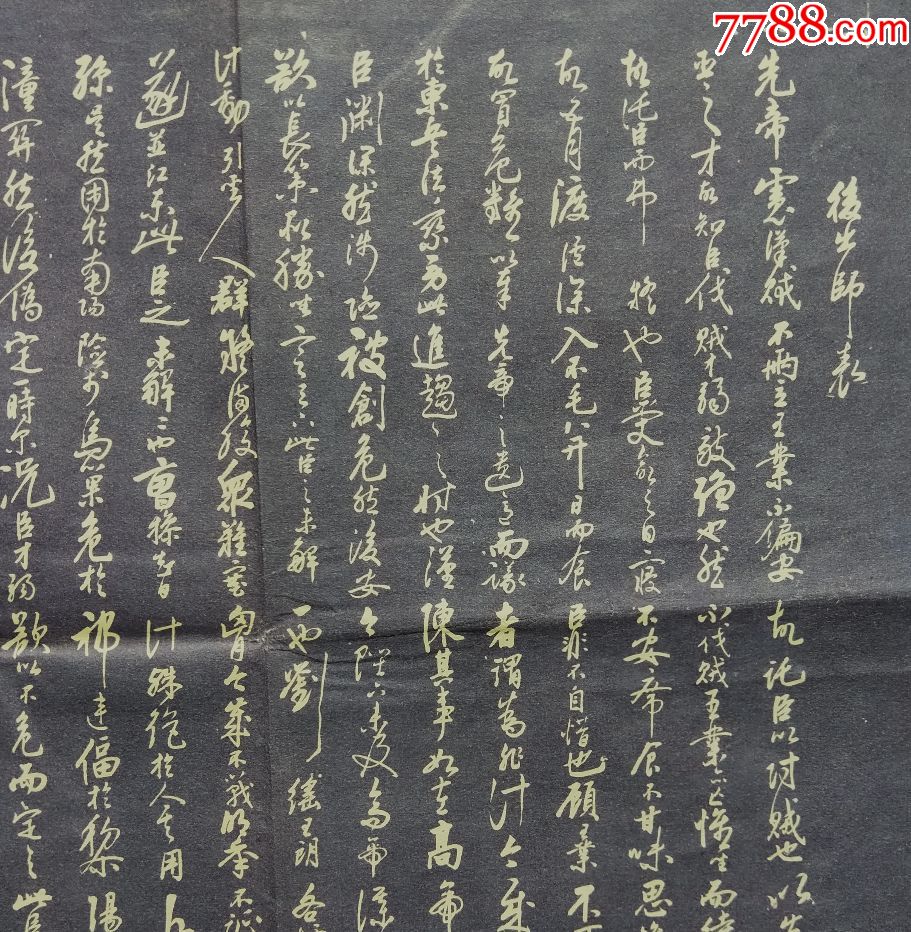 7788.com
後出師表
先帝慮漢賊不兩立王業不偏安故託臣以討賊也以先
之才故知臣伐賊才弱敵彊也然不伐賊王業亦亡惟坐而待
故託臣而弗疑也臣受命之日寢不安席食不甘味思惟
故五月渡瀘深入不毛并日而食臣非不自惜也顧王業不可
故冒危難以奉先帝之遺意而議者謂為非計今賊
於東兵法乘勞此進趨之時也謹陳其事如左高帝
臣淵深然涉險被創危然後安今陛下未及高帝
欲以長策取勝坐定天下此臣之未解一也劉繇王朗各
計動引聖人群疑滿腹眾難塞胸今歲不戰明年不征
遂並江東此臣之未解二也曹操智計殊絕於人其用兵
孫吳然困於南陽險於烏巢危於祁連偪於黎陽
潼關然後偽定一時爾況臣才弱欲以不危而定之此臣